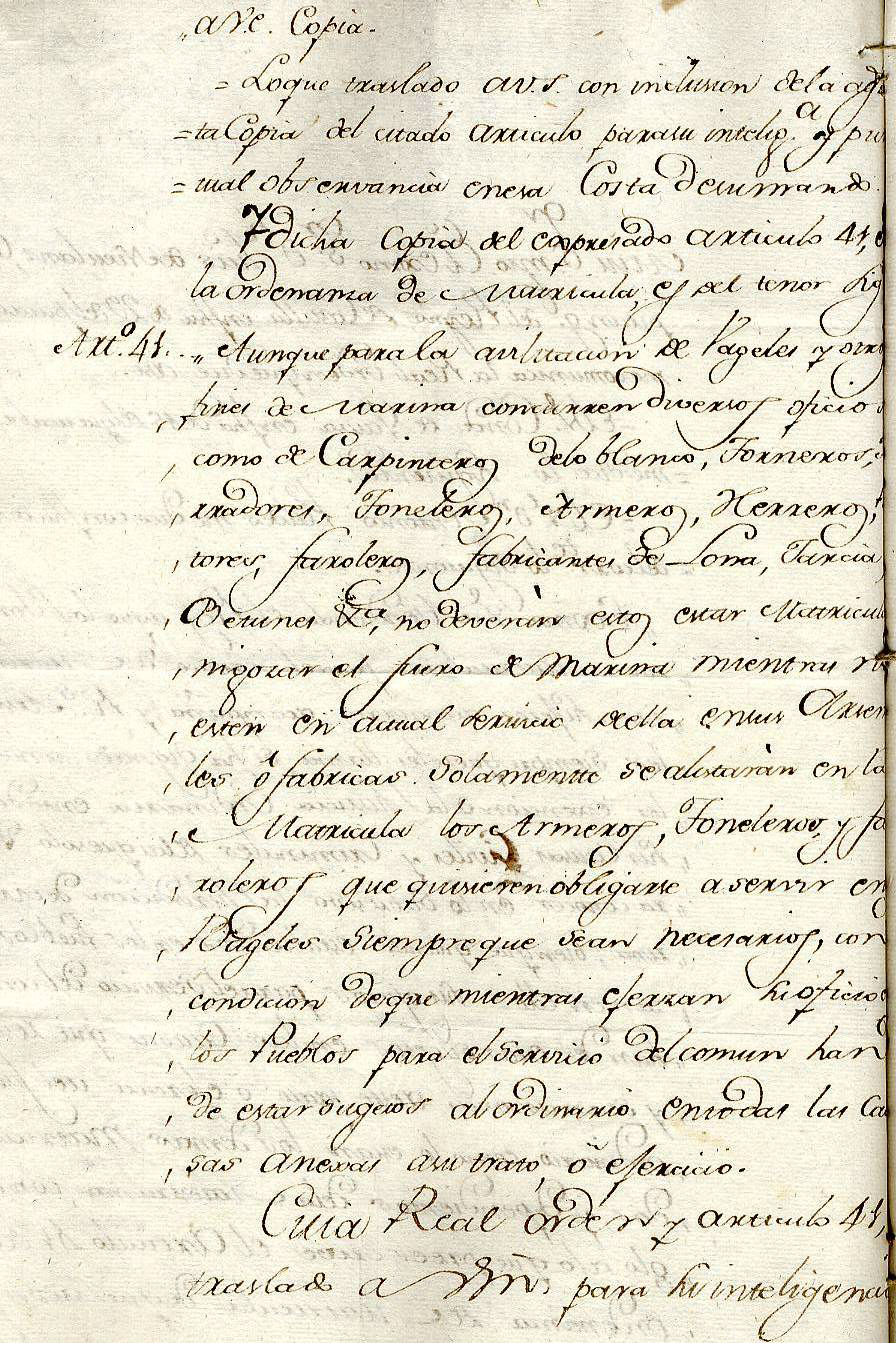 „aV.e. Copia.
= Loque traslado aV.S. con inclusion dela adj
= ta Copia del citado articulo parasu intelig.a y pun
= tual observancia enesa Costa desumando.
Y dicha Copia del expresado articulo 41, d
la ordenanza de Matricula, es del tenor sig
Art.o 41. „ Aunque parala avilitacion de Vageles y otro
, fines de Marina concurren diversos oficios
, como de Carpinteros delo blanco, Torneros,
, rradores, Toneleros, Armeros, Herreros,
, tores, faroleros, fabricantes de Lona, Tarcia
, Betunes &.a, no deveràn estos estar Matricul
, nigozar el fuero de Marina mientras n
, estèn en actual servicio deella ensus Arsen
, les ò fabricas. Solamente sealistaràn en la
, Matricula los Armeros, Toneleros, y fa
, roleros que quisieren obligarse aservir en
, Bageles siempreque sean necesarios, con
, condicion deque mientras eserzan su oficio
, los Pueblos para elservicio delcomun han
, de estar sugetos alordinario entodas las Cau
, sas anexas asu trato, ò esercicio.
Cuia Real orden y articulo 41,
traslado a Vm. para su inteligenci